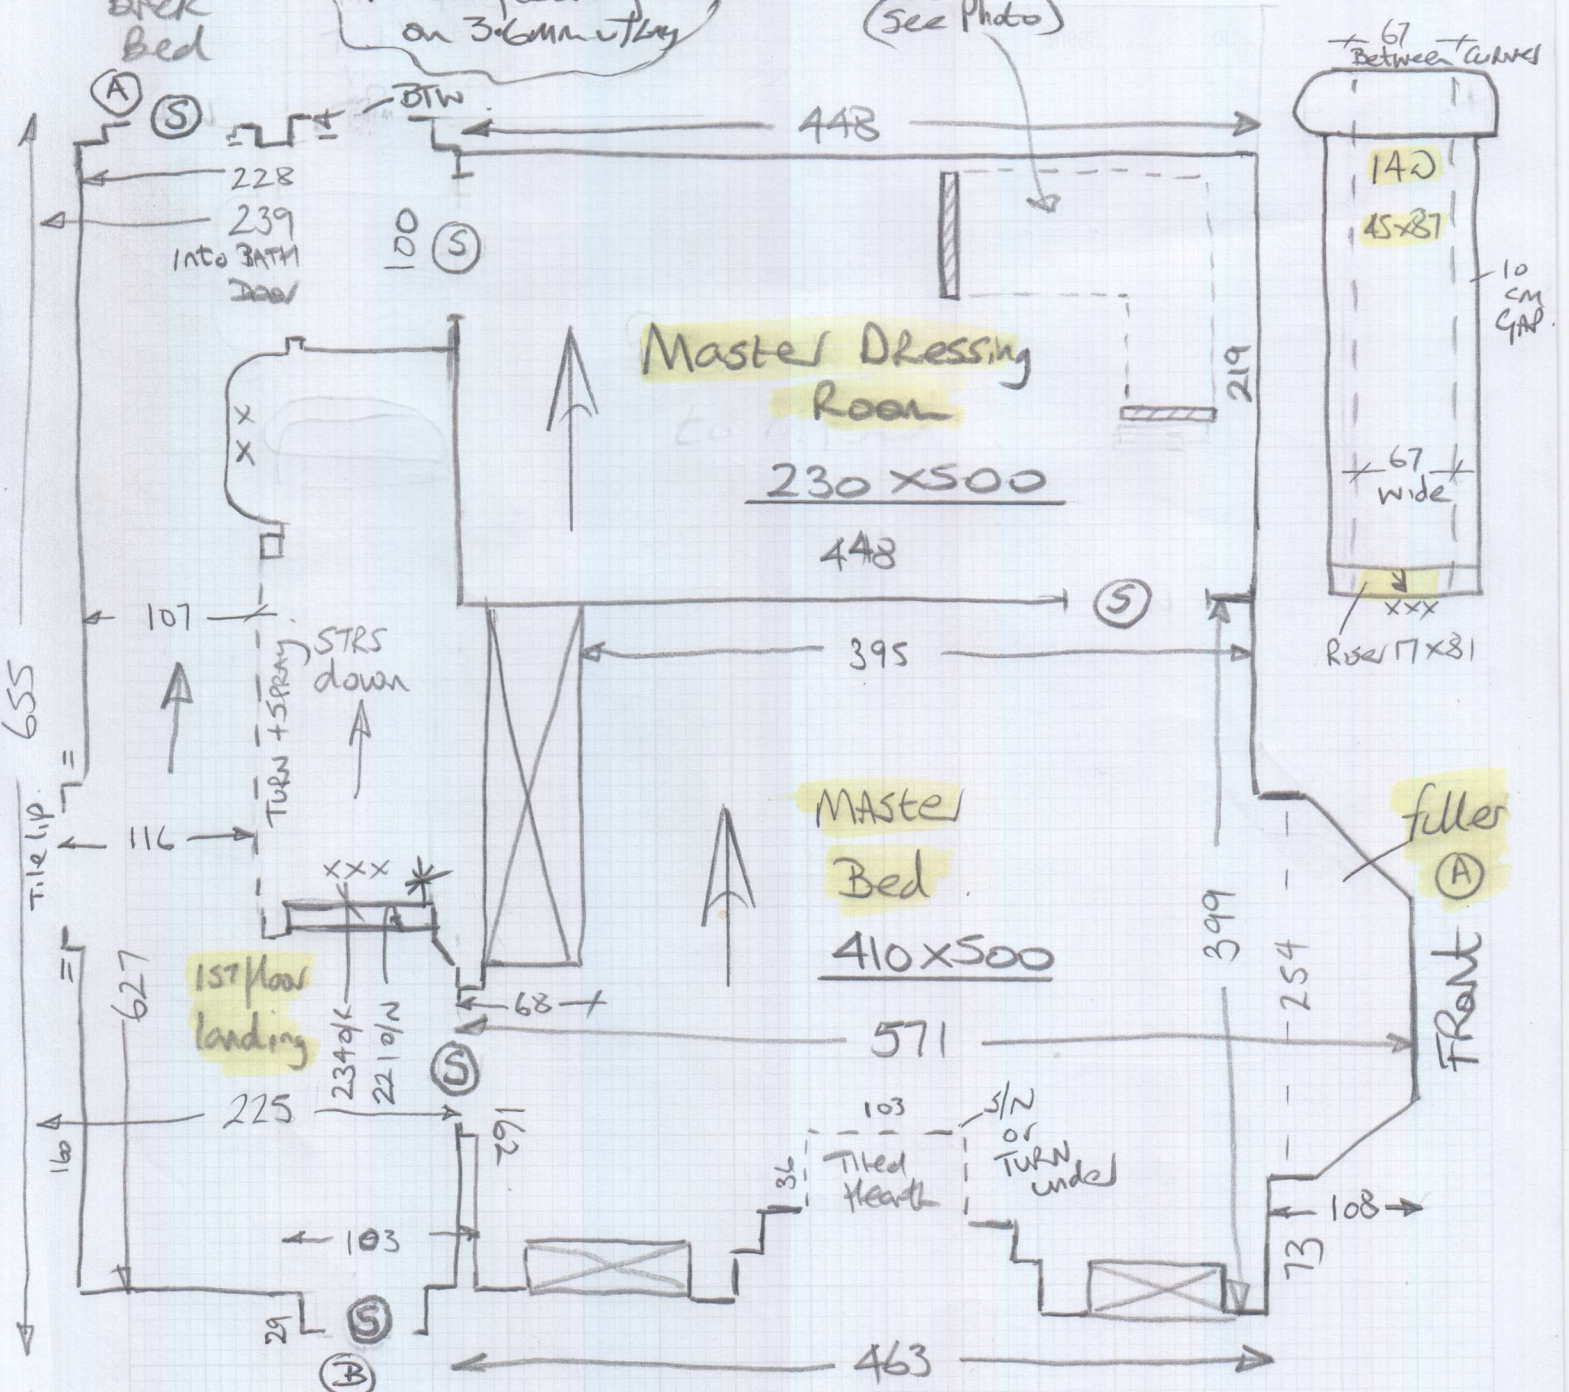 Bed
on 3.6mm u/lay
(see Photo)
67
Between curves
A
S
BTW
448
228
239
into BATH
Door
100
S
14D
45x87
10
cm
GAP.
Master Dressing
Room
219
230 x 500
448
67
wide
x
x
S
xxx
Riser 17 x 81
107
STRS
down
395
655
TURN + SPRAY
Tile lip
116
xxx
Master
Bed
410 x 500
filler
A
FRONT
399
254
1ST floor
landing
627
234 o/k
221 o/n
68
571
S
225
160
162
103
S/N
or
TURN
under
Tiled
Hearth
36
103
108
73
29
S
B
463